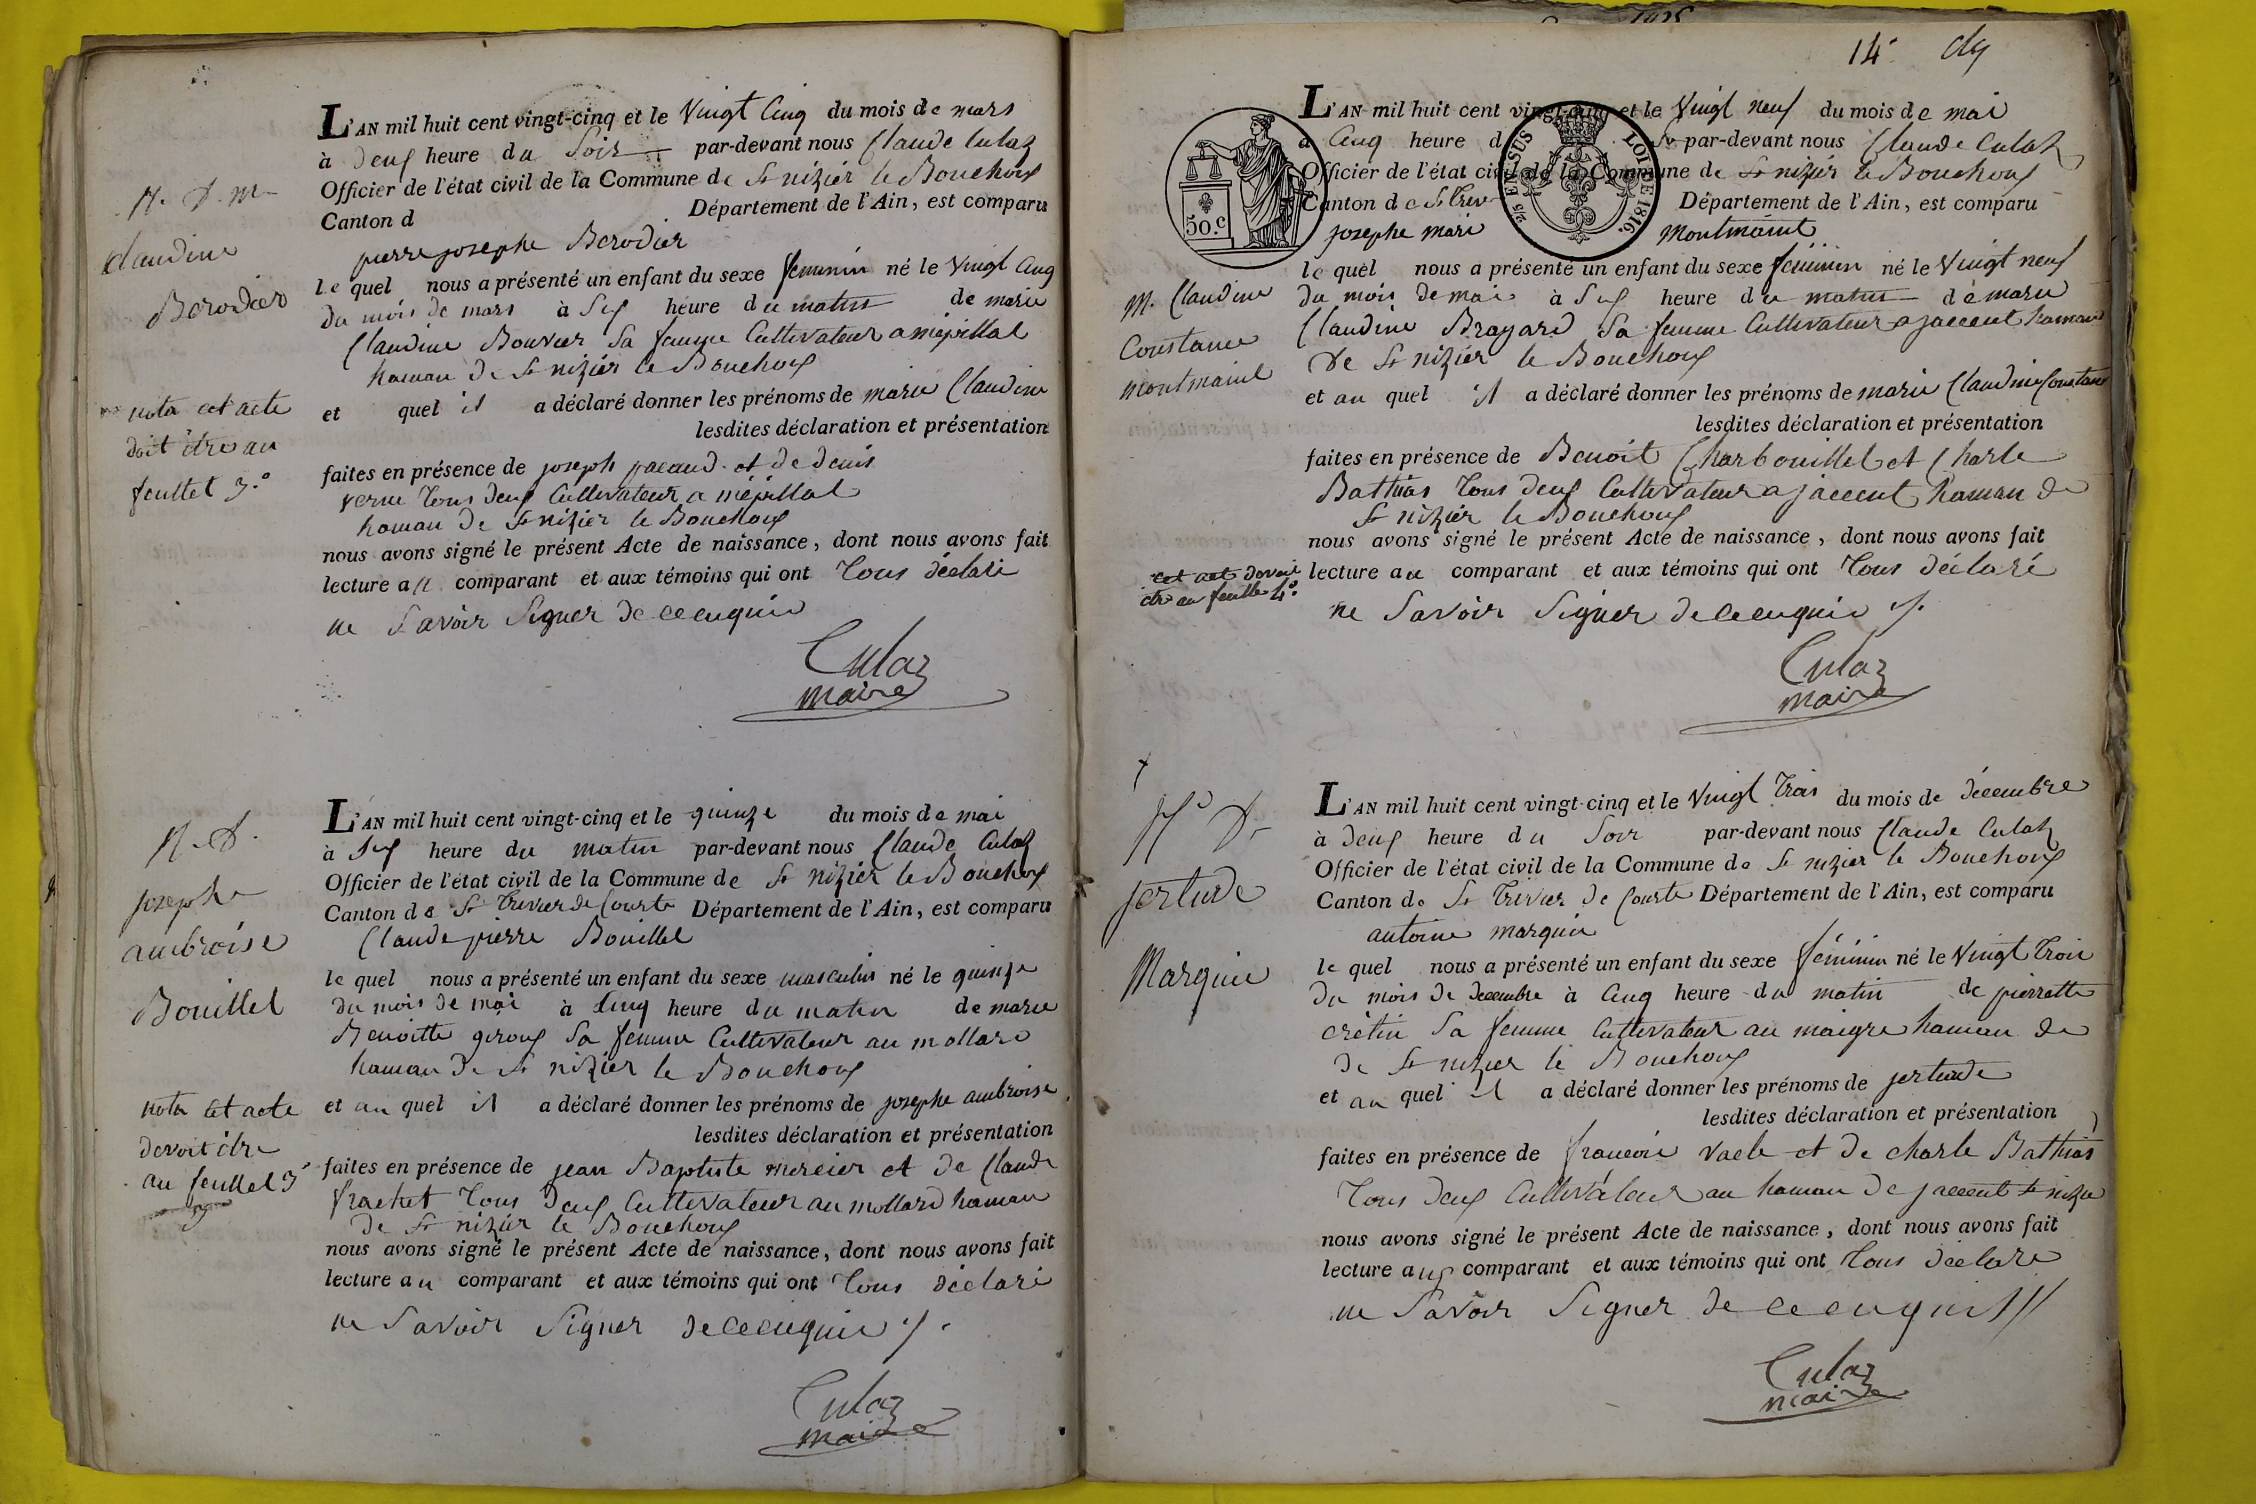 L'AN mil huit cent vingt-cinq et le vingt cinq du mois de mars
à deux heure du Soir par-devant nous Claude Culaz
Officier de l'état civil de la Commune de St nizier le Bouchoux
Canton d Département de l'Ain, est comparu
pierre josephe Berodier
le quel nous a présenté un enfant du sexe feminin né le vingt cinq
du mois de mars à Six heure du matin de marie
Claudine Bouvier Sa femme Cultivateur a mépillat
hamau de St nizier le Bouchoux
et quel il a déclaré donner les prénoms de marie Claudine
lesdites déclaration et présentation
faites en présence de joseph pacaud et de denis
verne Tous deux Cultivateur a mépillat
hamau de St nizier le Bouchoux
nous avons signé le présent Acte de naissance, dont nous avons fait
lecture au comparant et aux témoins qui ont Tous déclaré
ne Savoir Signer de ce enquis
Culaz
maire
N. D. m
claudine
Berodier
nota cet acte
doit être au
feuillet 3.º
L'AN mil huit cent vingt-cinq et le quinze du mois de mai
à Six heure du matin par-devant nous Claude Culaz
Officier de l'état civil de la Commune de St nizier le Bouchoux
Canton de St Trivier de Courte Département de l'Ain, est comparu
Claude pierre Bouillet
le quel nous a présenté un enfant du sexe masculin né le quinze
du mois de mai à Cinq heure du matin de marie
Benoitte giroux Sa femme Cultivateur au mollard
hamau de St nizier le Bouchoux
et au quel il a déclaré donner les prénoms de josephe ambroise
lesdites déclaration et présentation
faites en présence de jean Baptiste mercier et de Claude
frachet Tous deux Cultivateur au mollard hamau
de St nizier le Bouchoux
nous avons signé le présent Acte de naissance, dont nous avons fait
lecture au comparant et aux témoins qui ont Tous déclaré
ne Savoir Signer de ce enquis ./.
Culaz
maire
N. D.
josephe
ambroise
Bouillet
nota cet acte
devoit être
au feuillet 3
14.
L'AN mil huit cent vingt-cinq et le vingt neuf du mois de mai
à Cinq heure d par-devant nous Claude Culaz
Officier de l'état civil de la Commune de St nizier le Bouchoux
Canton de St Triv Département de l'Ain, est comparu
josephe mari montmaint
le quel nous a présenté un enfant du sexe féminin né le vingt neuf
du mois de mai à Six heure du matin de marie
Claudine Brayard Sa femme Cultivateur a jaccent hamau
de St nizier le Bouchoux
et au quel il a déclaré donner les prénoms de marie Claudine Constance
lesdites déclaration et présentation
faites en présence de Benoit Charbouillet et Charle
Bathias Tous deux Cultivateur a jaccent hamau de
St nizier le Bouchoux
nous avons signé le présent Acte de naissance, dont nous avons fait
lecture au comparant et aux témoins qui ont Tous déclaré
ne Savoir Signer de ce enquis ./.
Culaz
maire
50.c
2/5 EN SUS LOI DE 1816.
M. Claudine
Constance
montmaint
cet acte devoit
etre au feuille 4.º
L'AN mil huit cent vingt-cinq et le vingt trois du mois de décembre
à deux heure du Soir par-devant nous Claude Culaz
Officier de l'état civil de la Commune de St nizier le Bouchoux
Canton de St Trivier de Courte Département de l'Ain, est comparu
antoine marquin
le quel nous a présenté un enfant du sexe féminin né le vingt trois
du mois de decembre à cinq heure du matin de pierrette
crétin Sa femme Cultivateur au maigre hamau de
de St nizier le Bouchoux
et au quel il a déclaré donner les prénoms de jertrude
lesdites déclaration et présentation
faites en présence de francois vacle et de charle Bathias
Tous deux Cultivateur au hamau de jaccent St nizie
nous avons signé le présent Acte de naissance, dont nous avons fait
lecture aux comparant et aux témoins qui ont Tous déclaré
ne Savoir Signer de ce enquis
Culaz
maire
N. D.
jertrude
Marquin